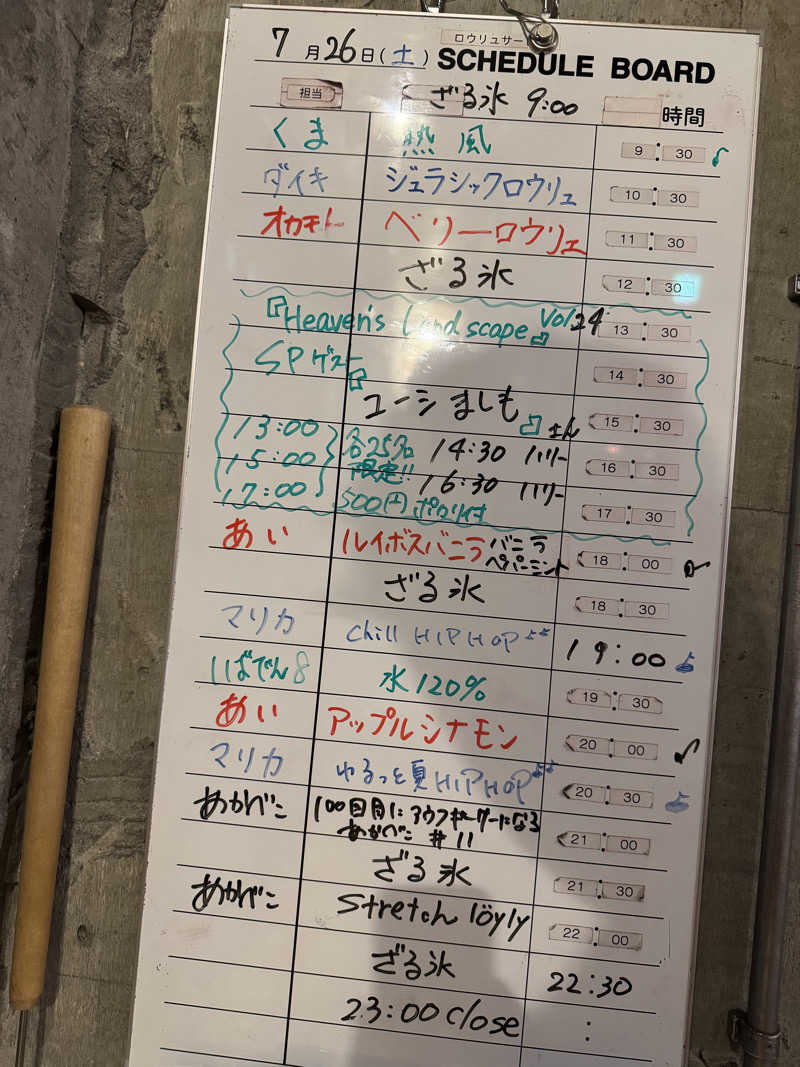 ロウリュサー
7月26日(土) SCHEDULE BOARD
担当 ざる氷 9:00 時間
くま 熱風 9:30
ダイキ ジュラシックロウリュ 10:30
オカモト ベリーロウリュ 11:30
ざる氷 12:30
『Heaven's Landscape』 Vol.24 13:30
SPゲスト 14:30
『ユーシましも』さん 15:30
13:00 各25名 14:30
15:00 限定!! 16:30 16:30
17:00 500円 17:30
あい ルイボスバニラ バニラ 18:00
ペパーミント
ざる氷 18:30
マリカ chill HIPHOP 19:00
いばでん8 水120% 19:30
あい アップルシナモン 20:00
マリカ ゆるっと夏HIPHOP 20:30
あかべこ 100回目にアウフギーサーになる 21:00
あかべこ #11
ざる氷 21:30
あかべこ Stretch löyly 22:00
ざる氷 22:30
23:00 close :